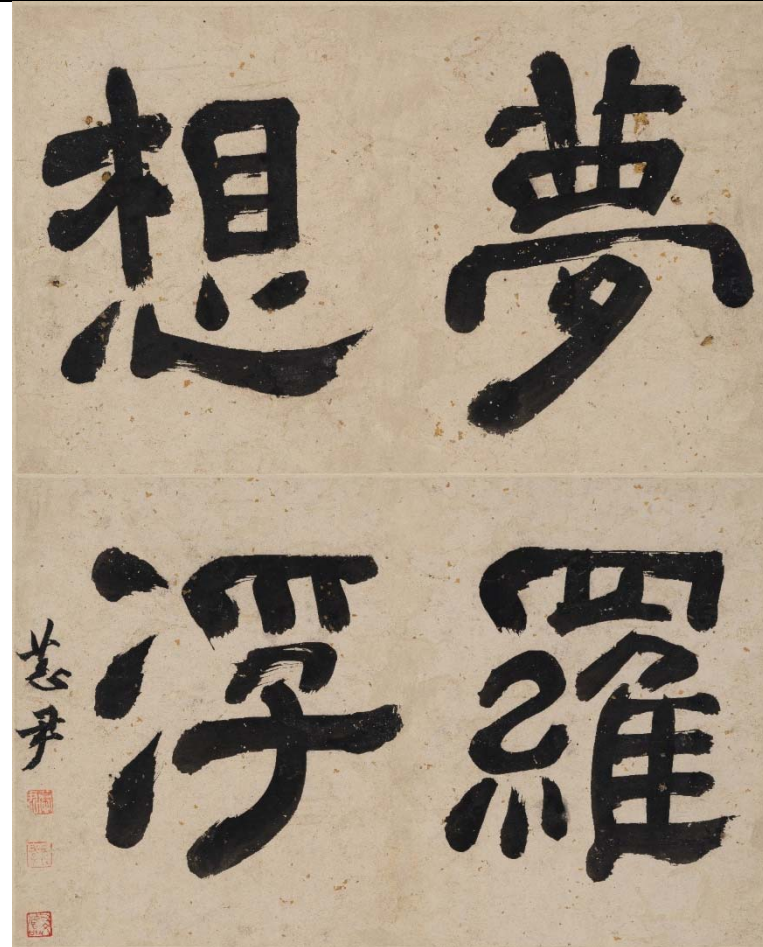 夢想
羅浮
慧尹